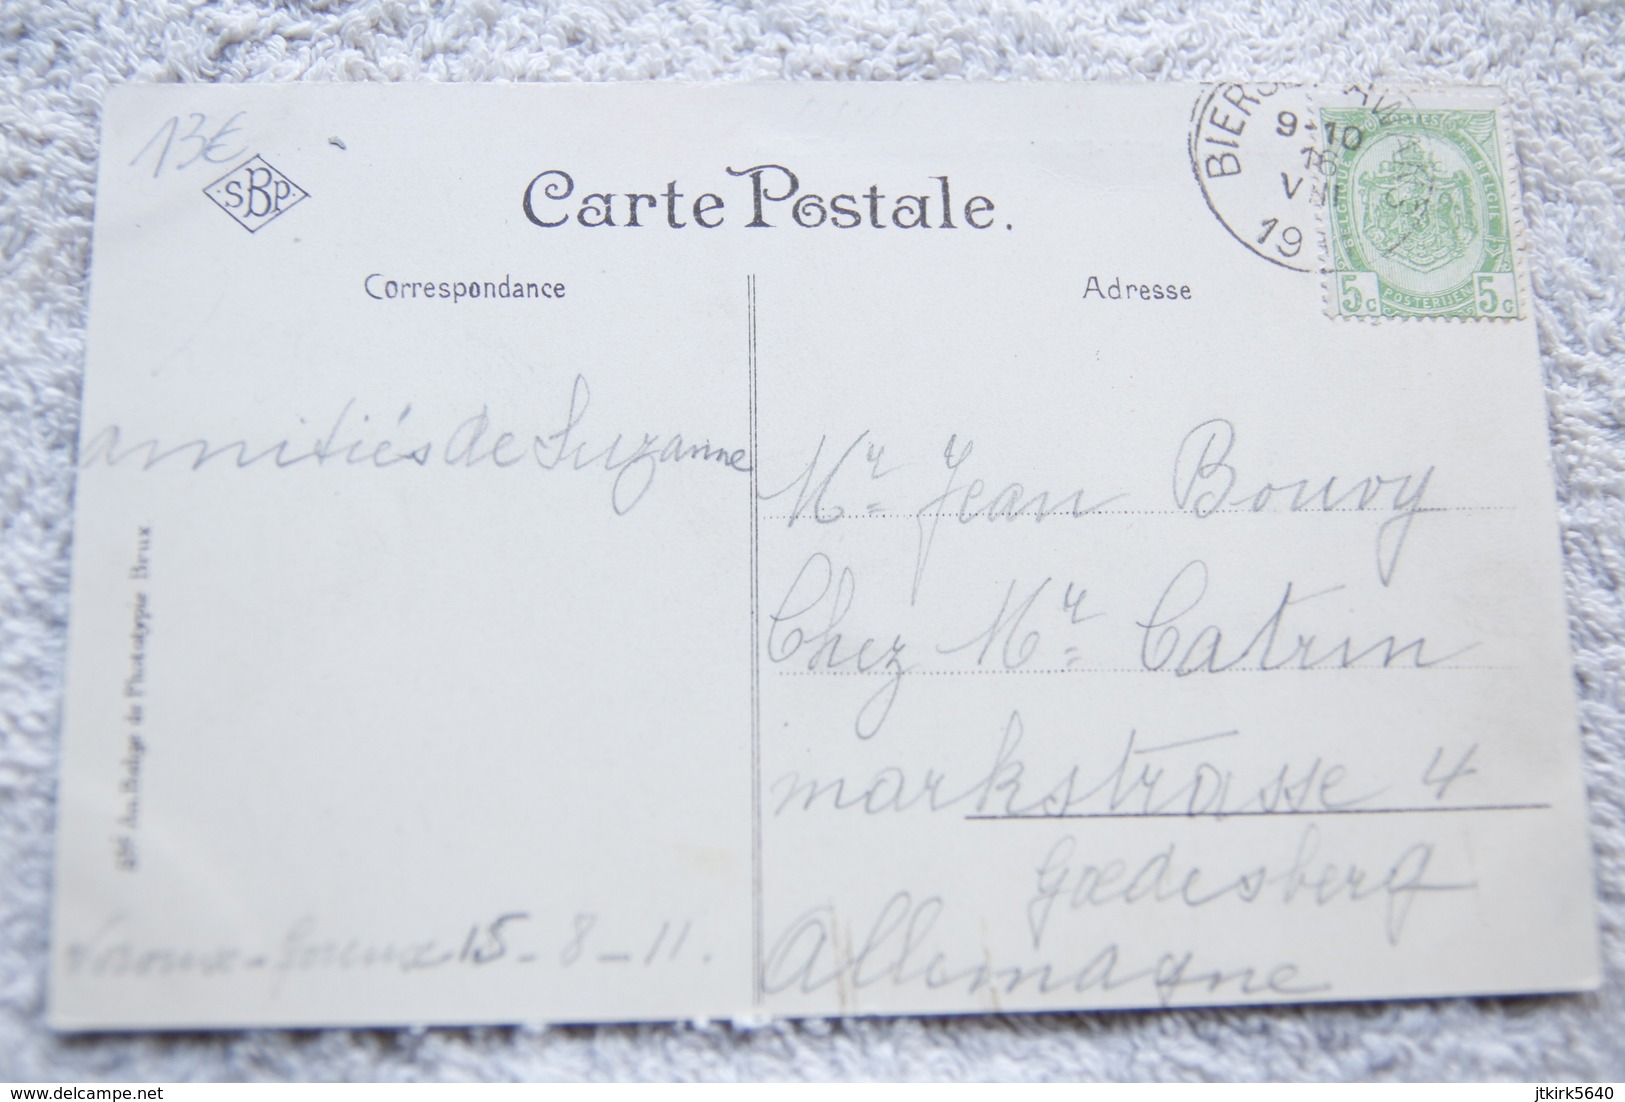 13€
SBP
Carte Postale.
Correspondance
Adresse
9-10
V
19
POSTES
BELGIQUE BELGIE
5c POSTERIJEN 5c
amitiés de Suzanne
Mr Jean Bouvy
Chez Mr Catrin
markstrasse 4
Goedesberg
Allemagne
15-8-11.
de Phototypie Brux
www.delcampe.net
jtkirk5640